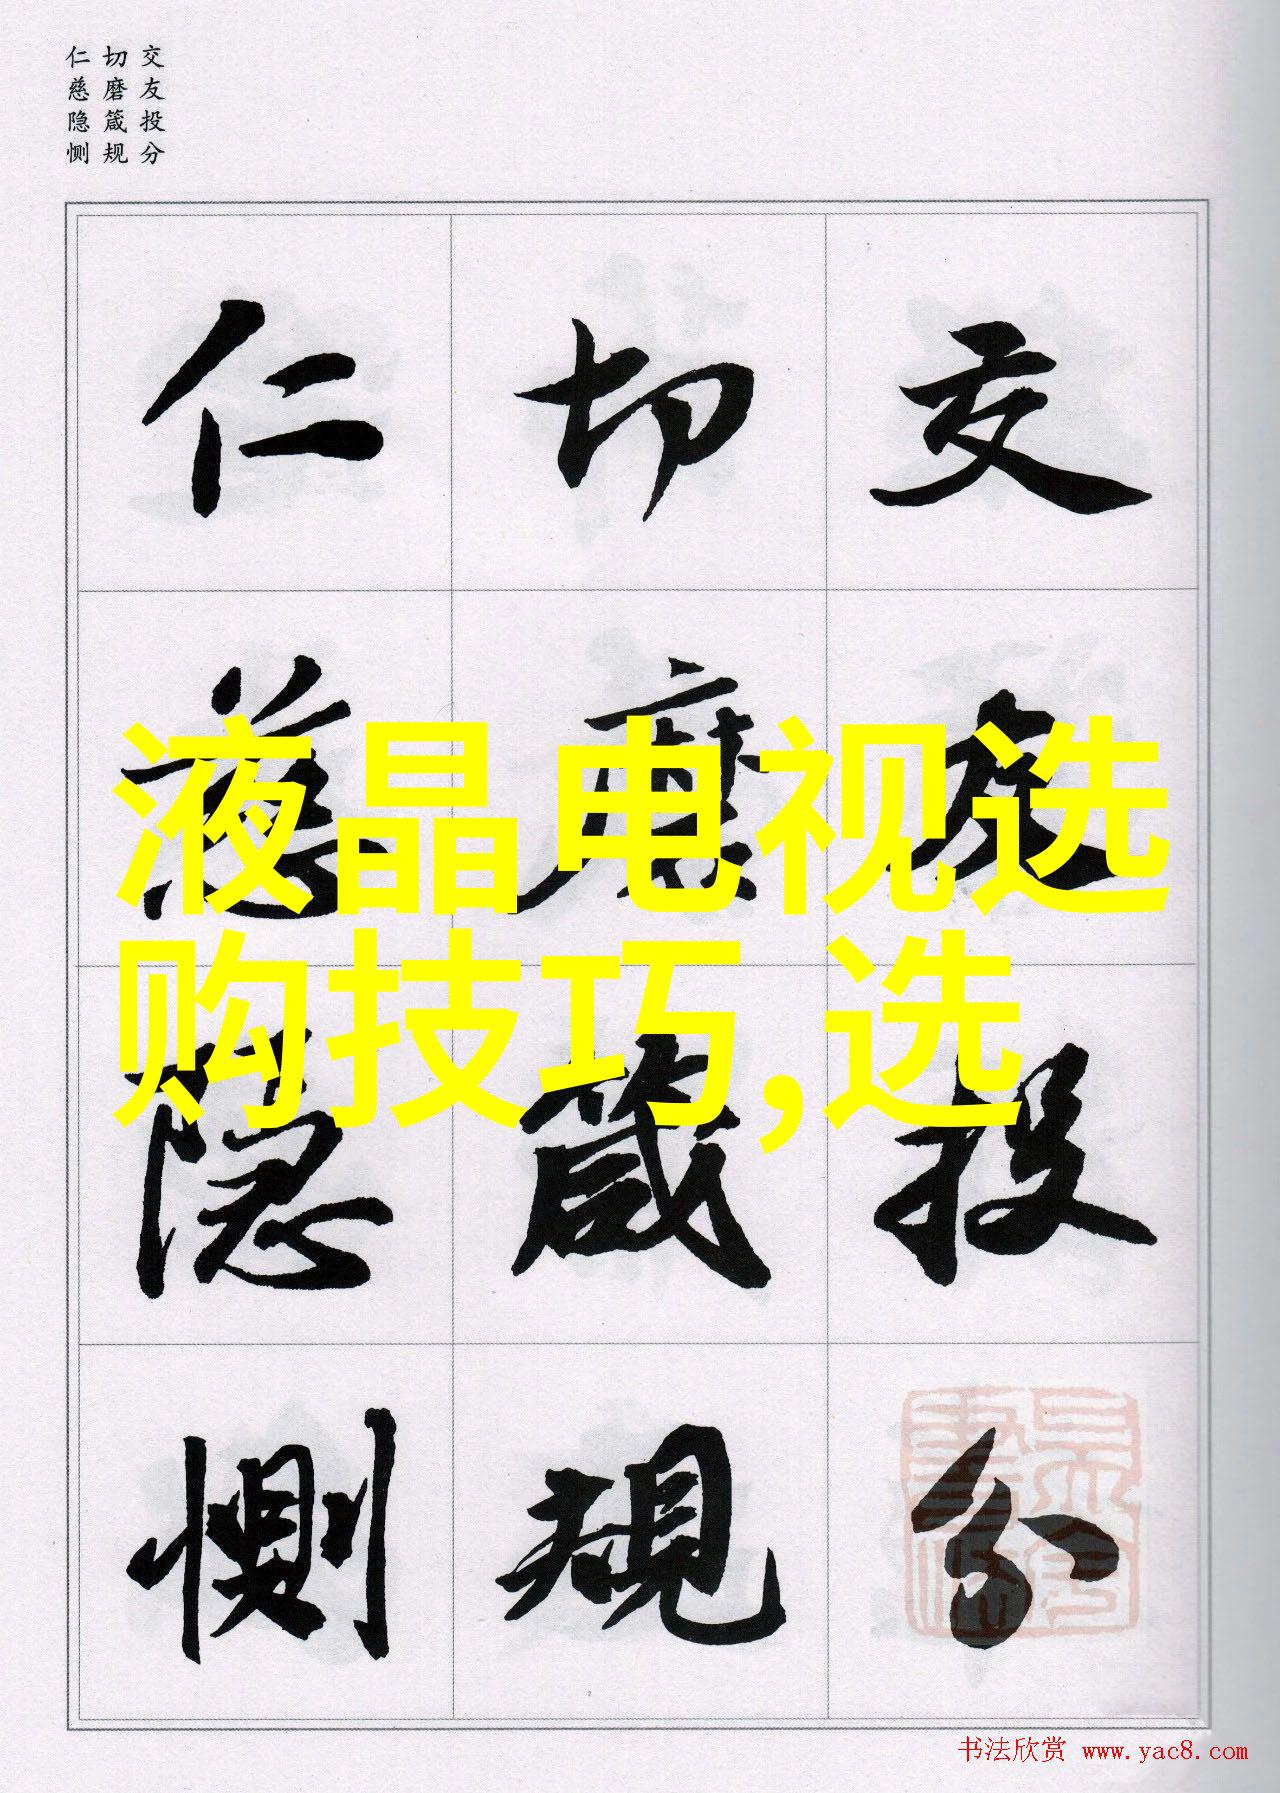 交友投分
切磨箴规
仁慈隐恻
交友投分
切磨箴規
仁慈隐恻
液晶电视选
购技巧,选
书法欣赏 www.yac8.com